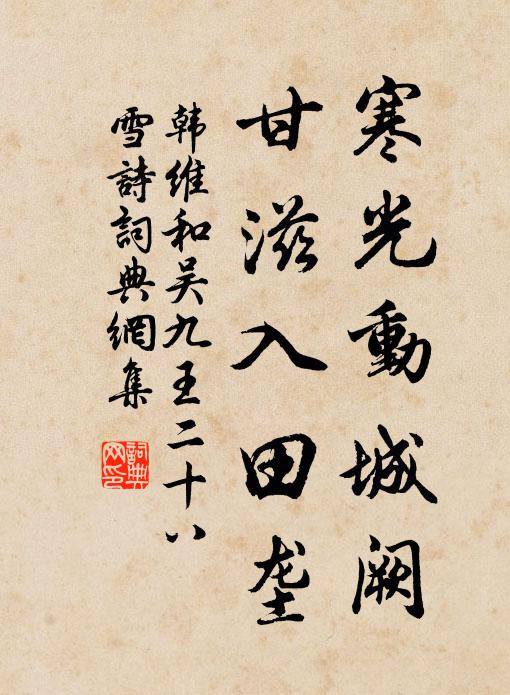 寒光動城阙
甘滋入田垄
韩維和吴九王二十八
雪詩詞典網集
詞典网印